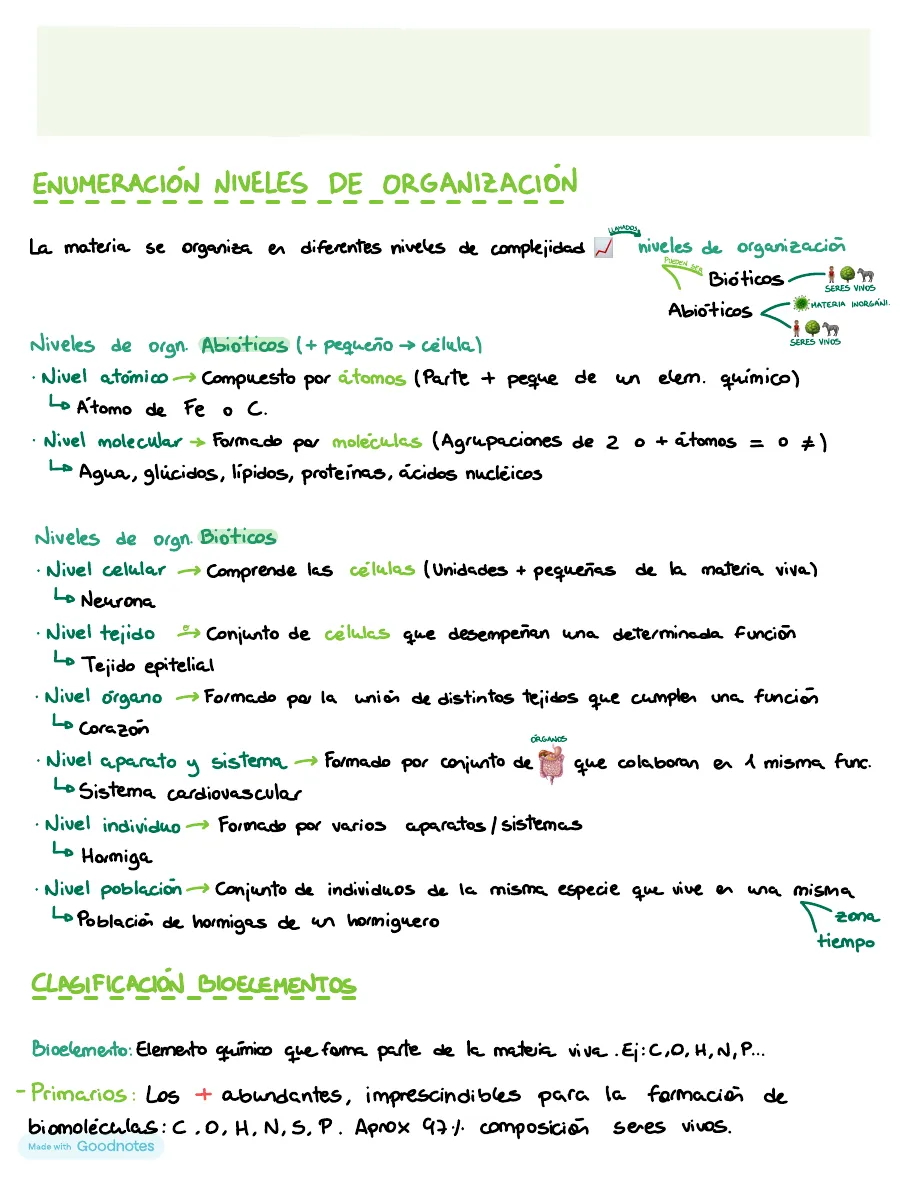 ENUMERACIÓN NIVELES DE ORGANIZACIÓN
La materia se organiza en diferentes niveles de complejidad LLAMADOS niveles de organización
PUEDEN SER
Bióticos
SERES VIVOS
Abióticos
MATERIA INORGÁNI.
SERES VIVOS
Niveles de orgn. Abióticos (+ pequeño → célula)
· Nivel atómico → Compuesto por átomos (Parte + peque de un elem. químico)
↳ Átomo de Fe o C.
· Nivel molecular → Formado por moléculas (Agrupaciones de 2 o + átomos = o ≠)
↳ Agua, glúcidos, lípidos, proteínas, ácidos nucléicos
Niveles de orgn. Bióticos
· Nivel celular → Comprende las células (Unidades + pequeñas de la materia viva)
↳ Neurona
· Nivel tejido → Conjunto de células que desempeñan una determinada función
↳ Tejido epitelial
· Nivel órgano → Formado por la unión de distintos tejidos que cumplen una función
↳ Corazón
· Nivel aparato y sistema → Formado por conjunto de ÓRGANOS que colaboran en 1 misma func.
↳ Sistema cardiovascular
· Nivel individuo → Formado por varios aparatos/sistemas
↳ Hormiga
· Nivel población → Conjunto de individuos de la misma especie que vive en una misma
zona
↳ Población de hormigas de un hormiguero
tiempo
CLASIFICACIÓN BIOELEMENTOS
Bioelemento: Elemento químico que forma parte de la materia viva. Ej: C, O, H, N, P...
- Primarios: Los + abundantes, imprescindibles para la formación de
biomoléculas: C, O, H, N, S, P. Aprox 97% composición seres vivos.
Made with Goodnotes